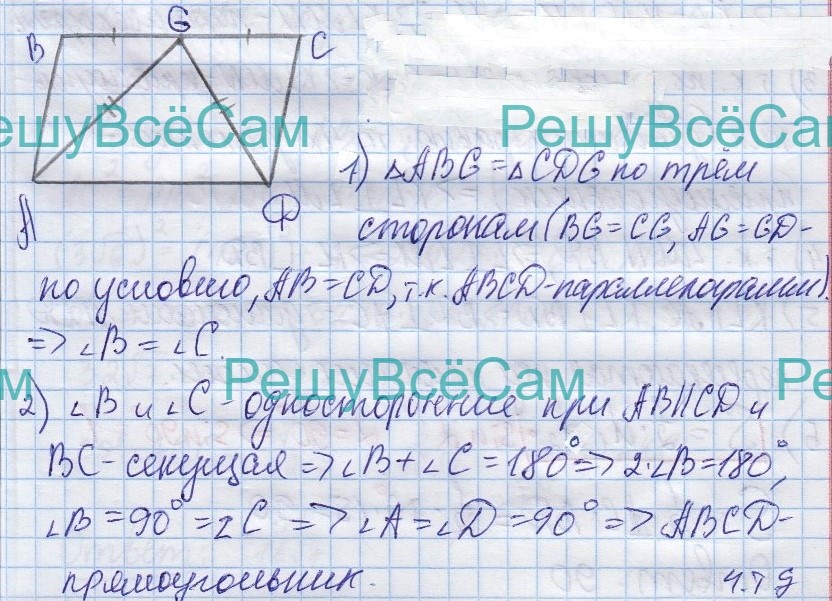 G
B
C
A
D
ешуВсёСам
РешуВсёСа
1) △ABG = △CDG по трём
сторонам (BG = CG, AG = GD -
по условию, AB = CD, т.к. ABCD - параллелограмм)
=> ∠B = ∠C.
м
РешуВсёСам
Ре
2) ∠B и ∠C - односторонние при AB || CD и
BC - секущая => ∠B + ∠C = 180° => 2·∠B = 180°,
∠B = 90° = ∠C => ∠A = ∠D = 90° => ABCD -
прямоугольник.
ч.т.д